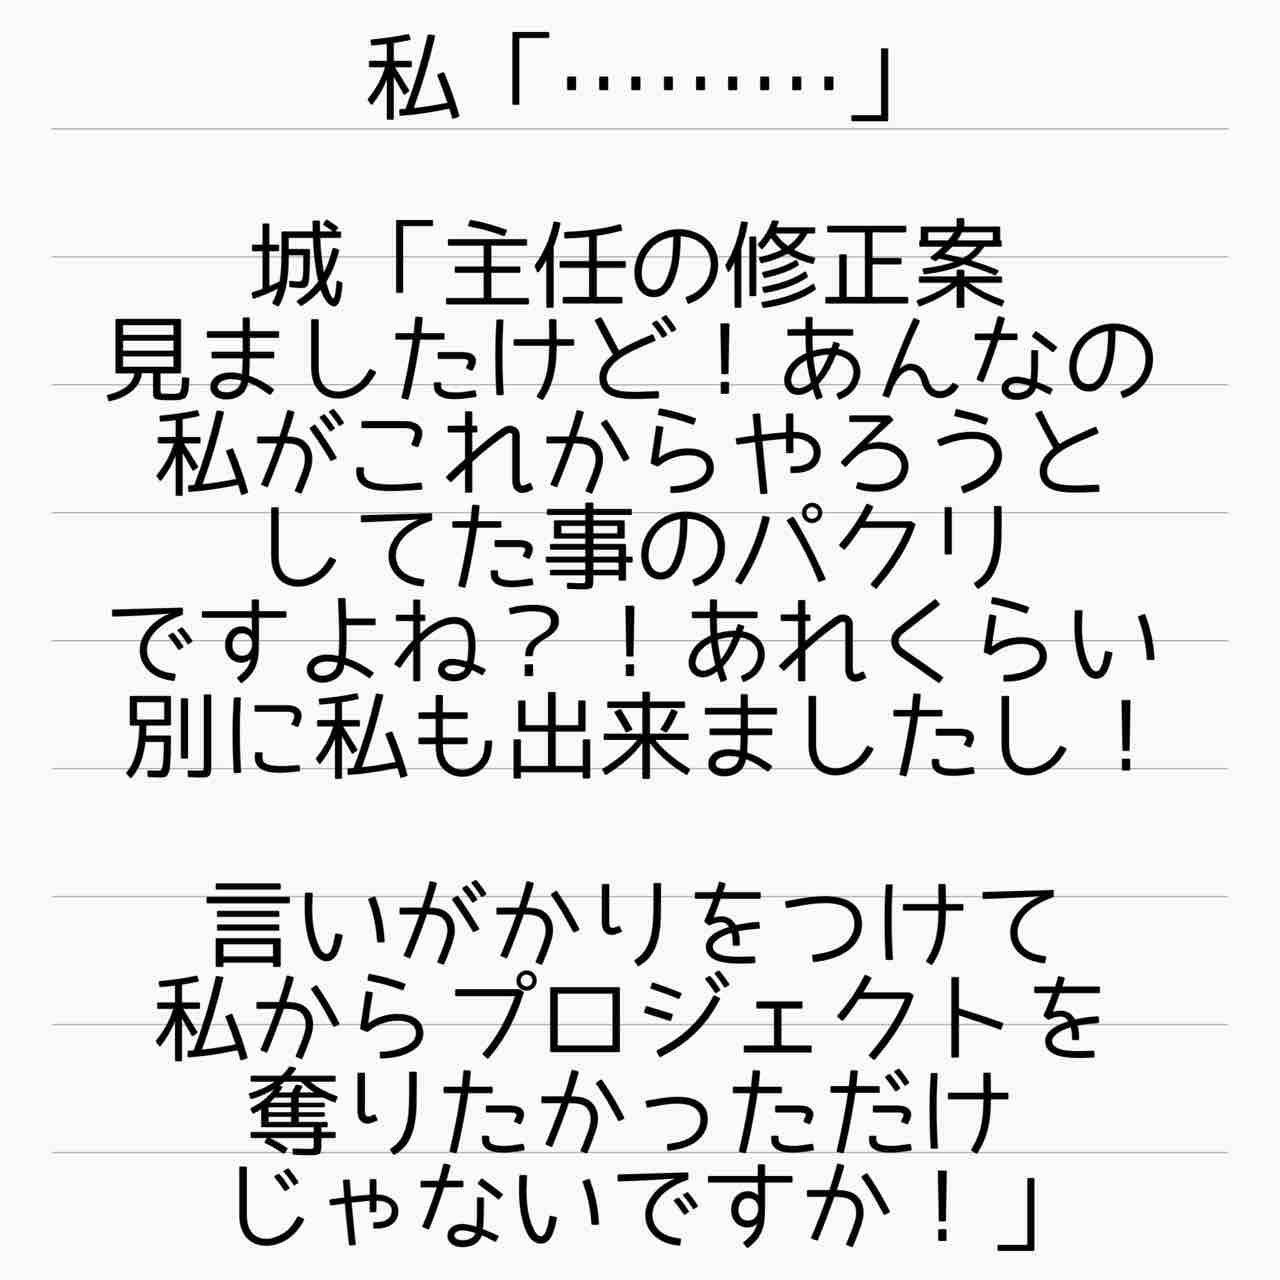 私「………」
城「主任の修正案
見ましたけど！あんなの
私がこれからやろうと
してた事のパクリ
ですよね？！あれくらい
別に私も出来ましたし！
言いがかりをつけて
私からプロジェクトを
奪りたかっただけ
じゃないですか！」